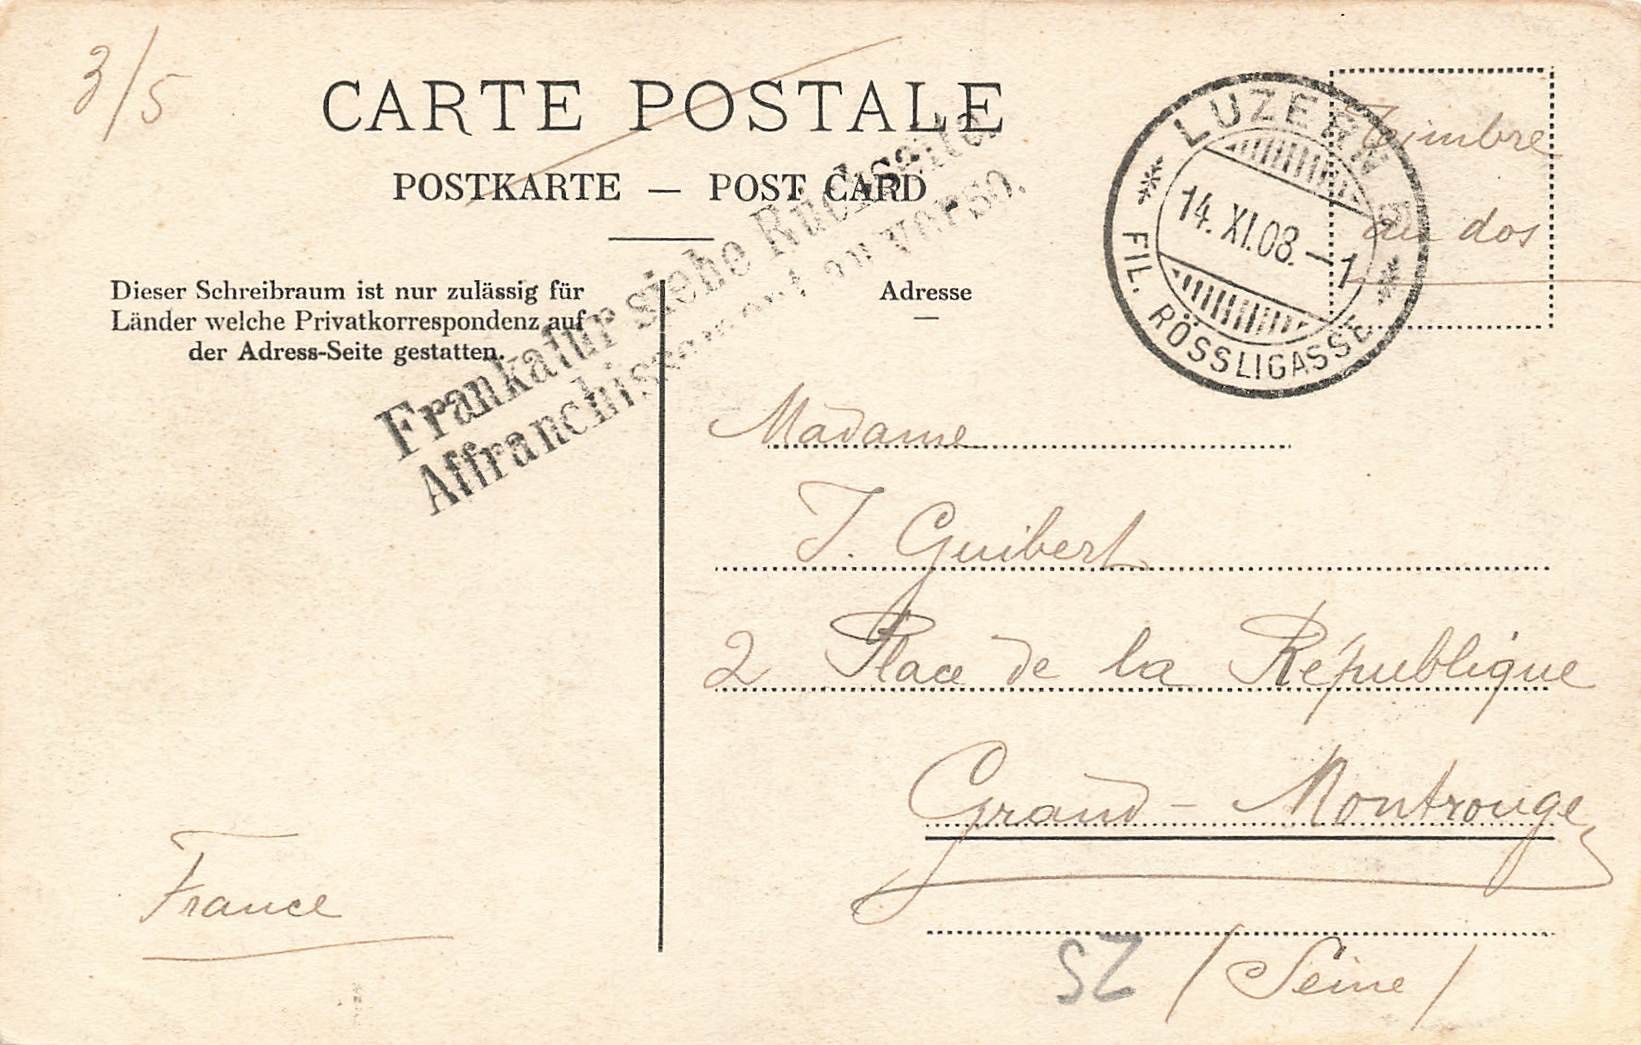 3/5
CARTE POSTALE
POSTKARTE — POST CARD
Frankatur siehe Rückseite.
Affranchissement au verso.
LUZERN
14. XI. 08. – 1
FIL. RÖSSLIGASSE
Timbre
au dos
Dieser Schreibraum ist nur zulässig für
Länder welche Privatkorrespondenz auf
der Adress-Seite gestatten.
Adresse
Madame
J. Guibert
2 Place de la République
Grand-Montrouge
(Seine)
France
SZ